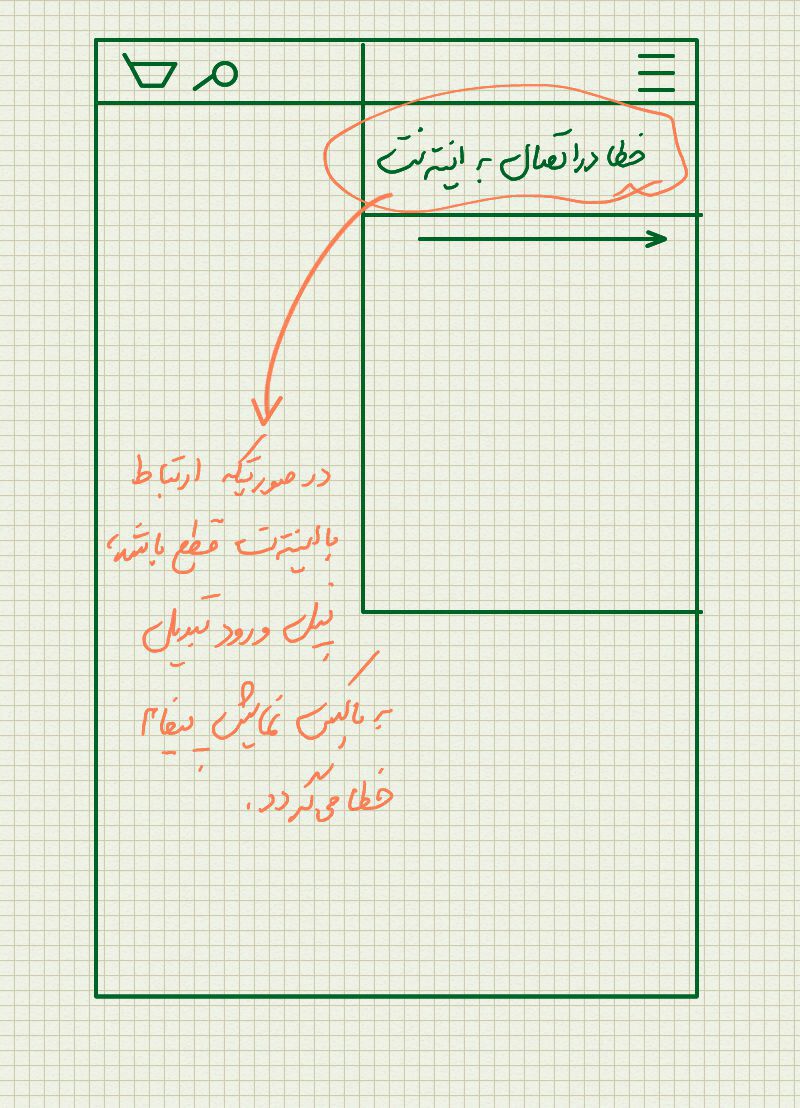 خطا در اتصال به اینترنت
در صورتیکه ارتباط
با اینترنت قطع باشد،
پنل ورود تبدیل
به باکس نمایش پیغام
خطا می‌گردد.